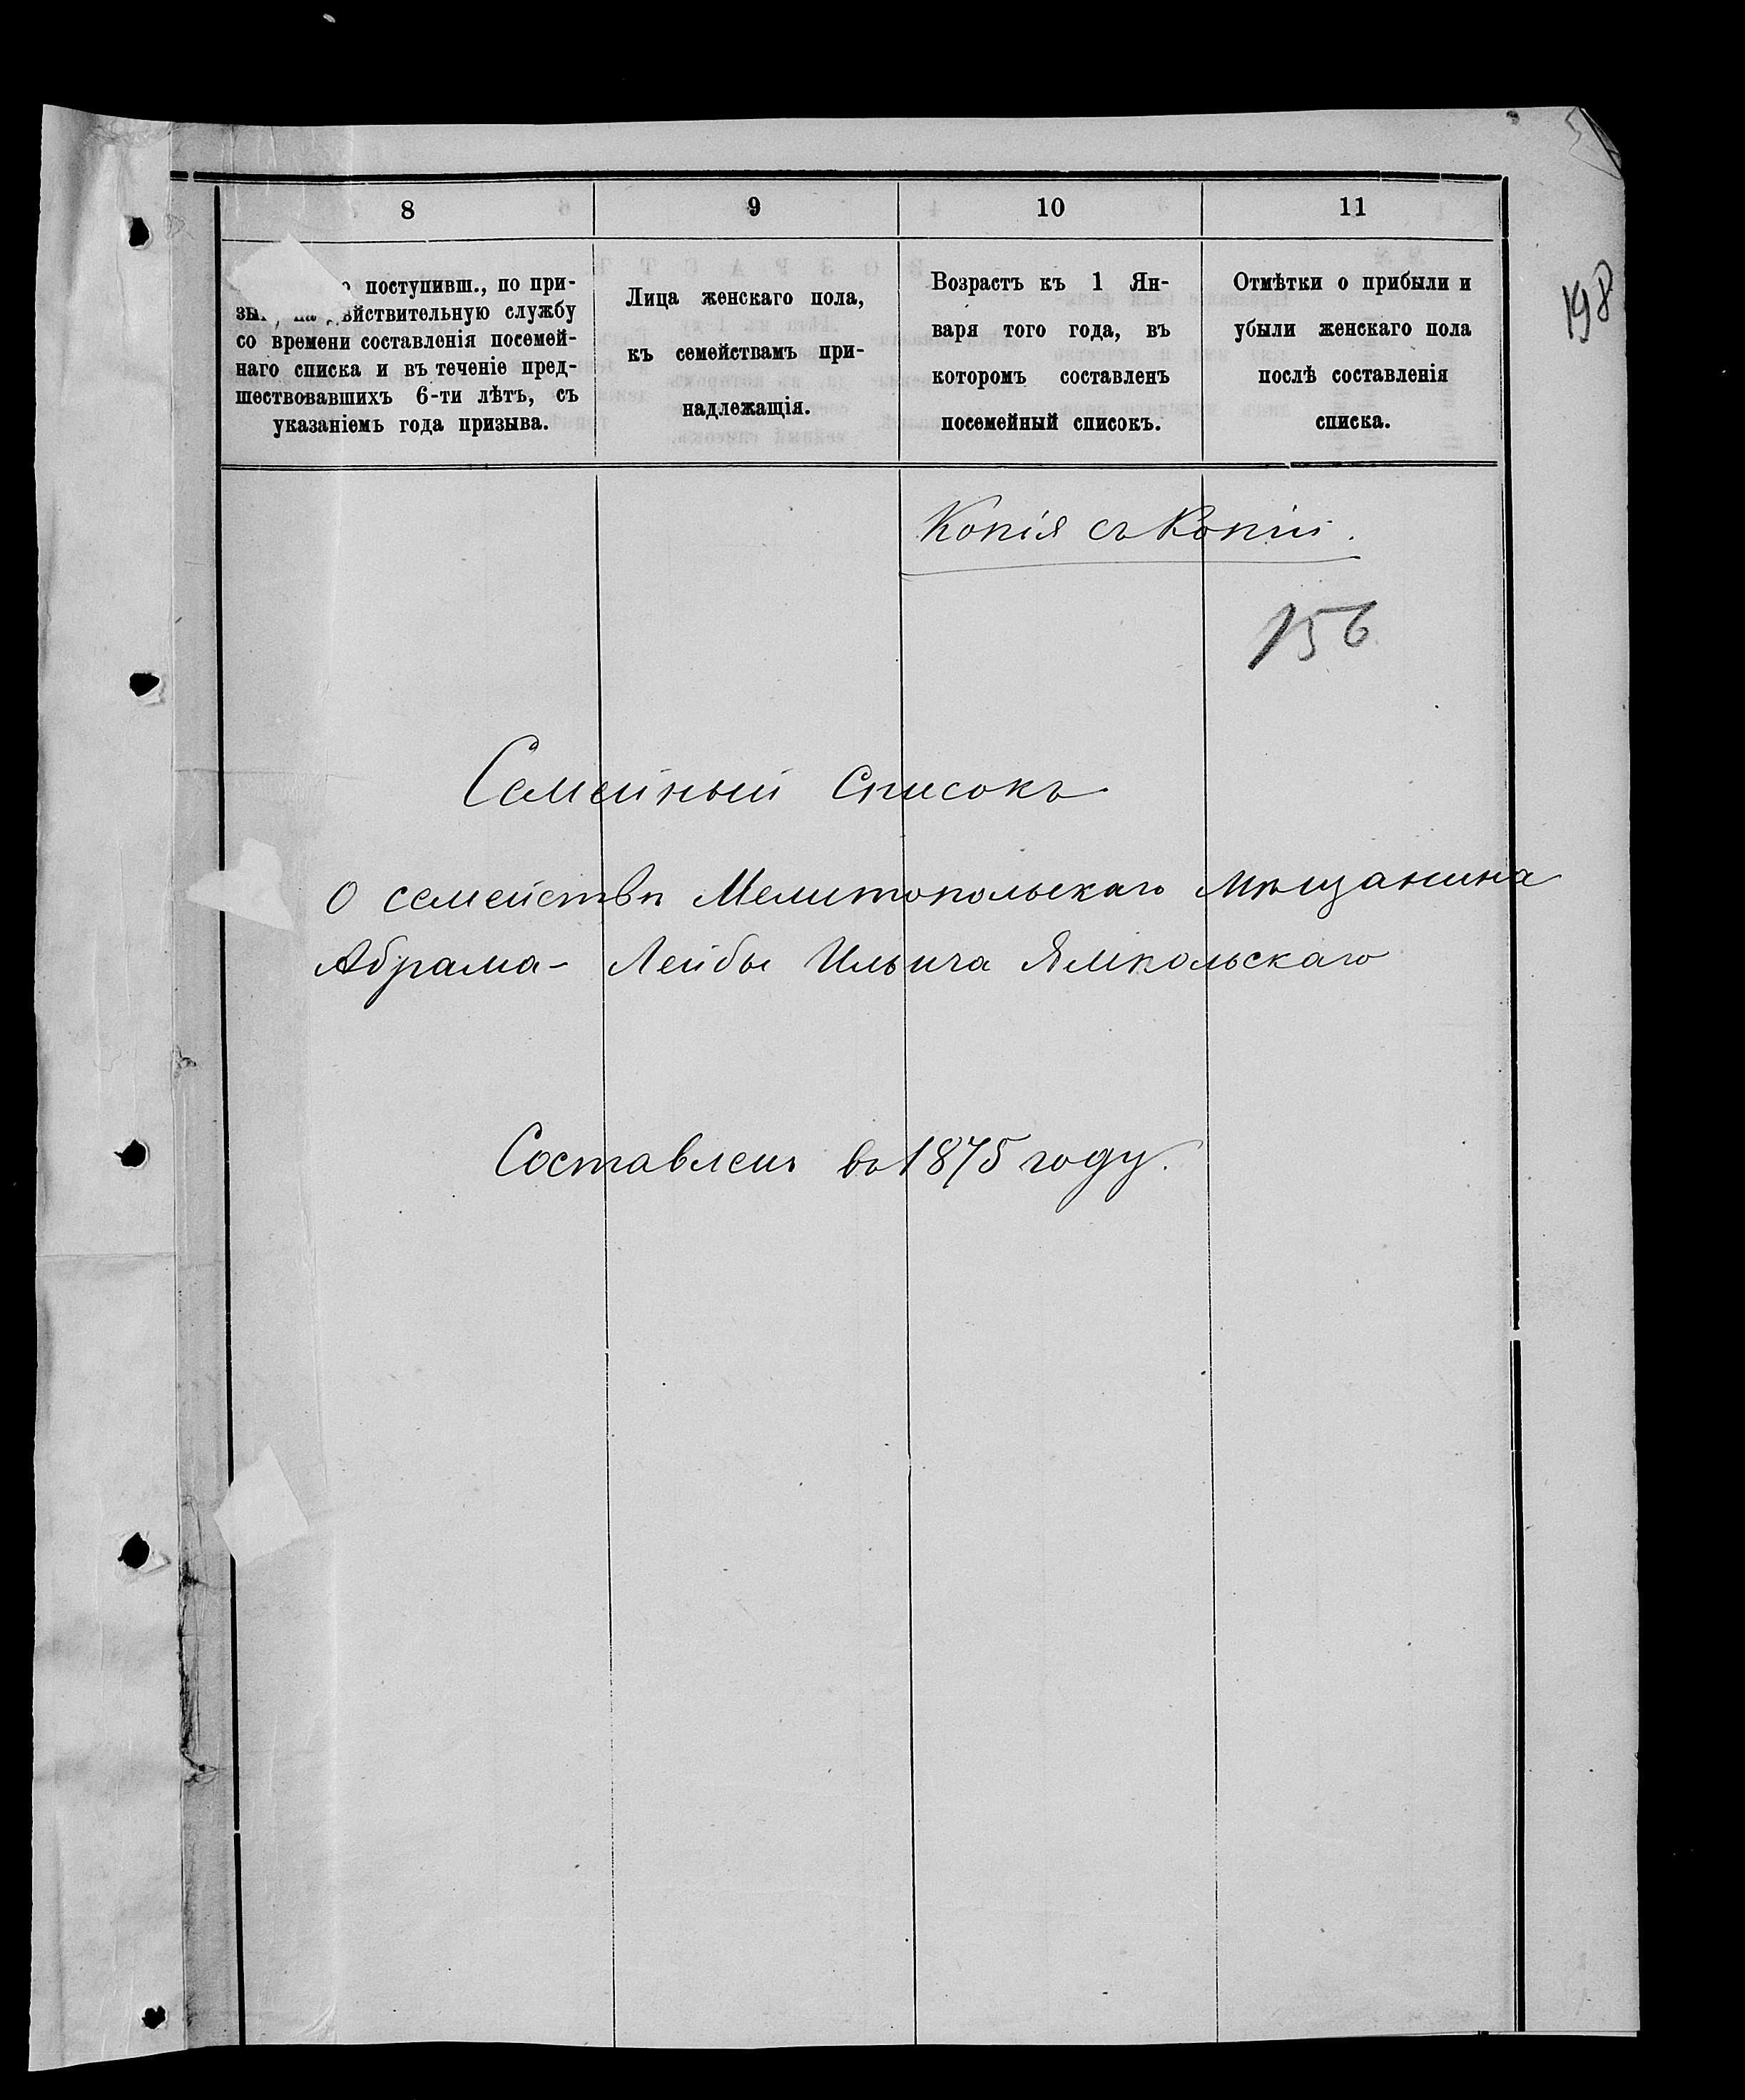 8 9 10 11
поступивш., по при-
дѣйствительную службу
со времени составленія посемей-
наго списка и въ теченіе пред-
шествовавшихъ 6-ти лѣтъ, съ
указаніемъ года призыва.
Лица женскаго пола,
къ семействамъ при-
надлежащія.
Возрастъ къ 1 Ян-
варя того года, въ
которомъ составленъ
посемейный списокъ.
Отмѣтки о прибыли и
убыли женскаго пола
послѣ составленія
списка.
198
Копія съ Копіи.
156
Семейный Списокъ
О семействѣ Мелитопольскаго мѣщанина
Абрама- Лейбы Ильича Ямпольскаго
Составленъ въ 1875 году.